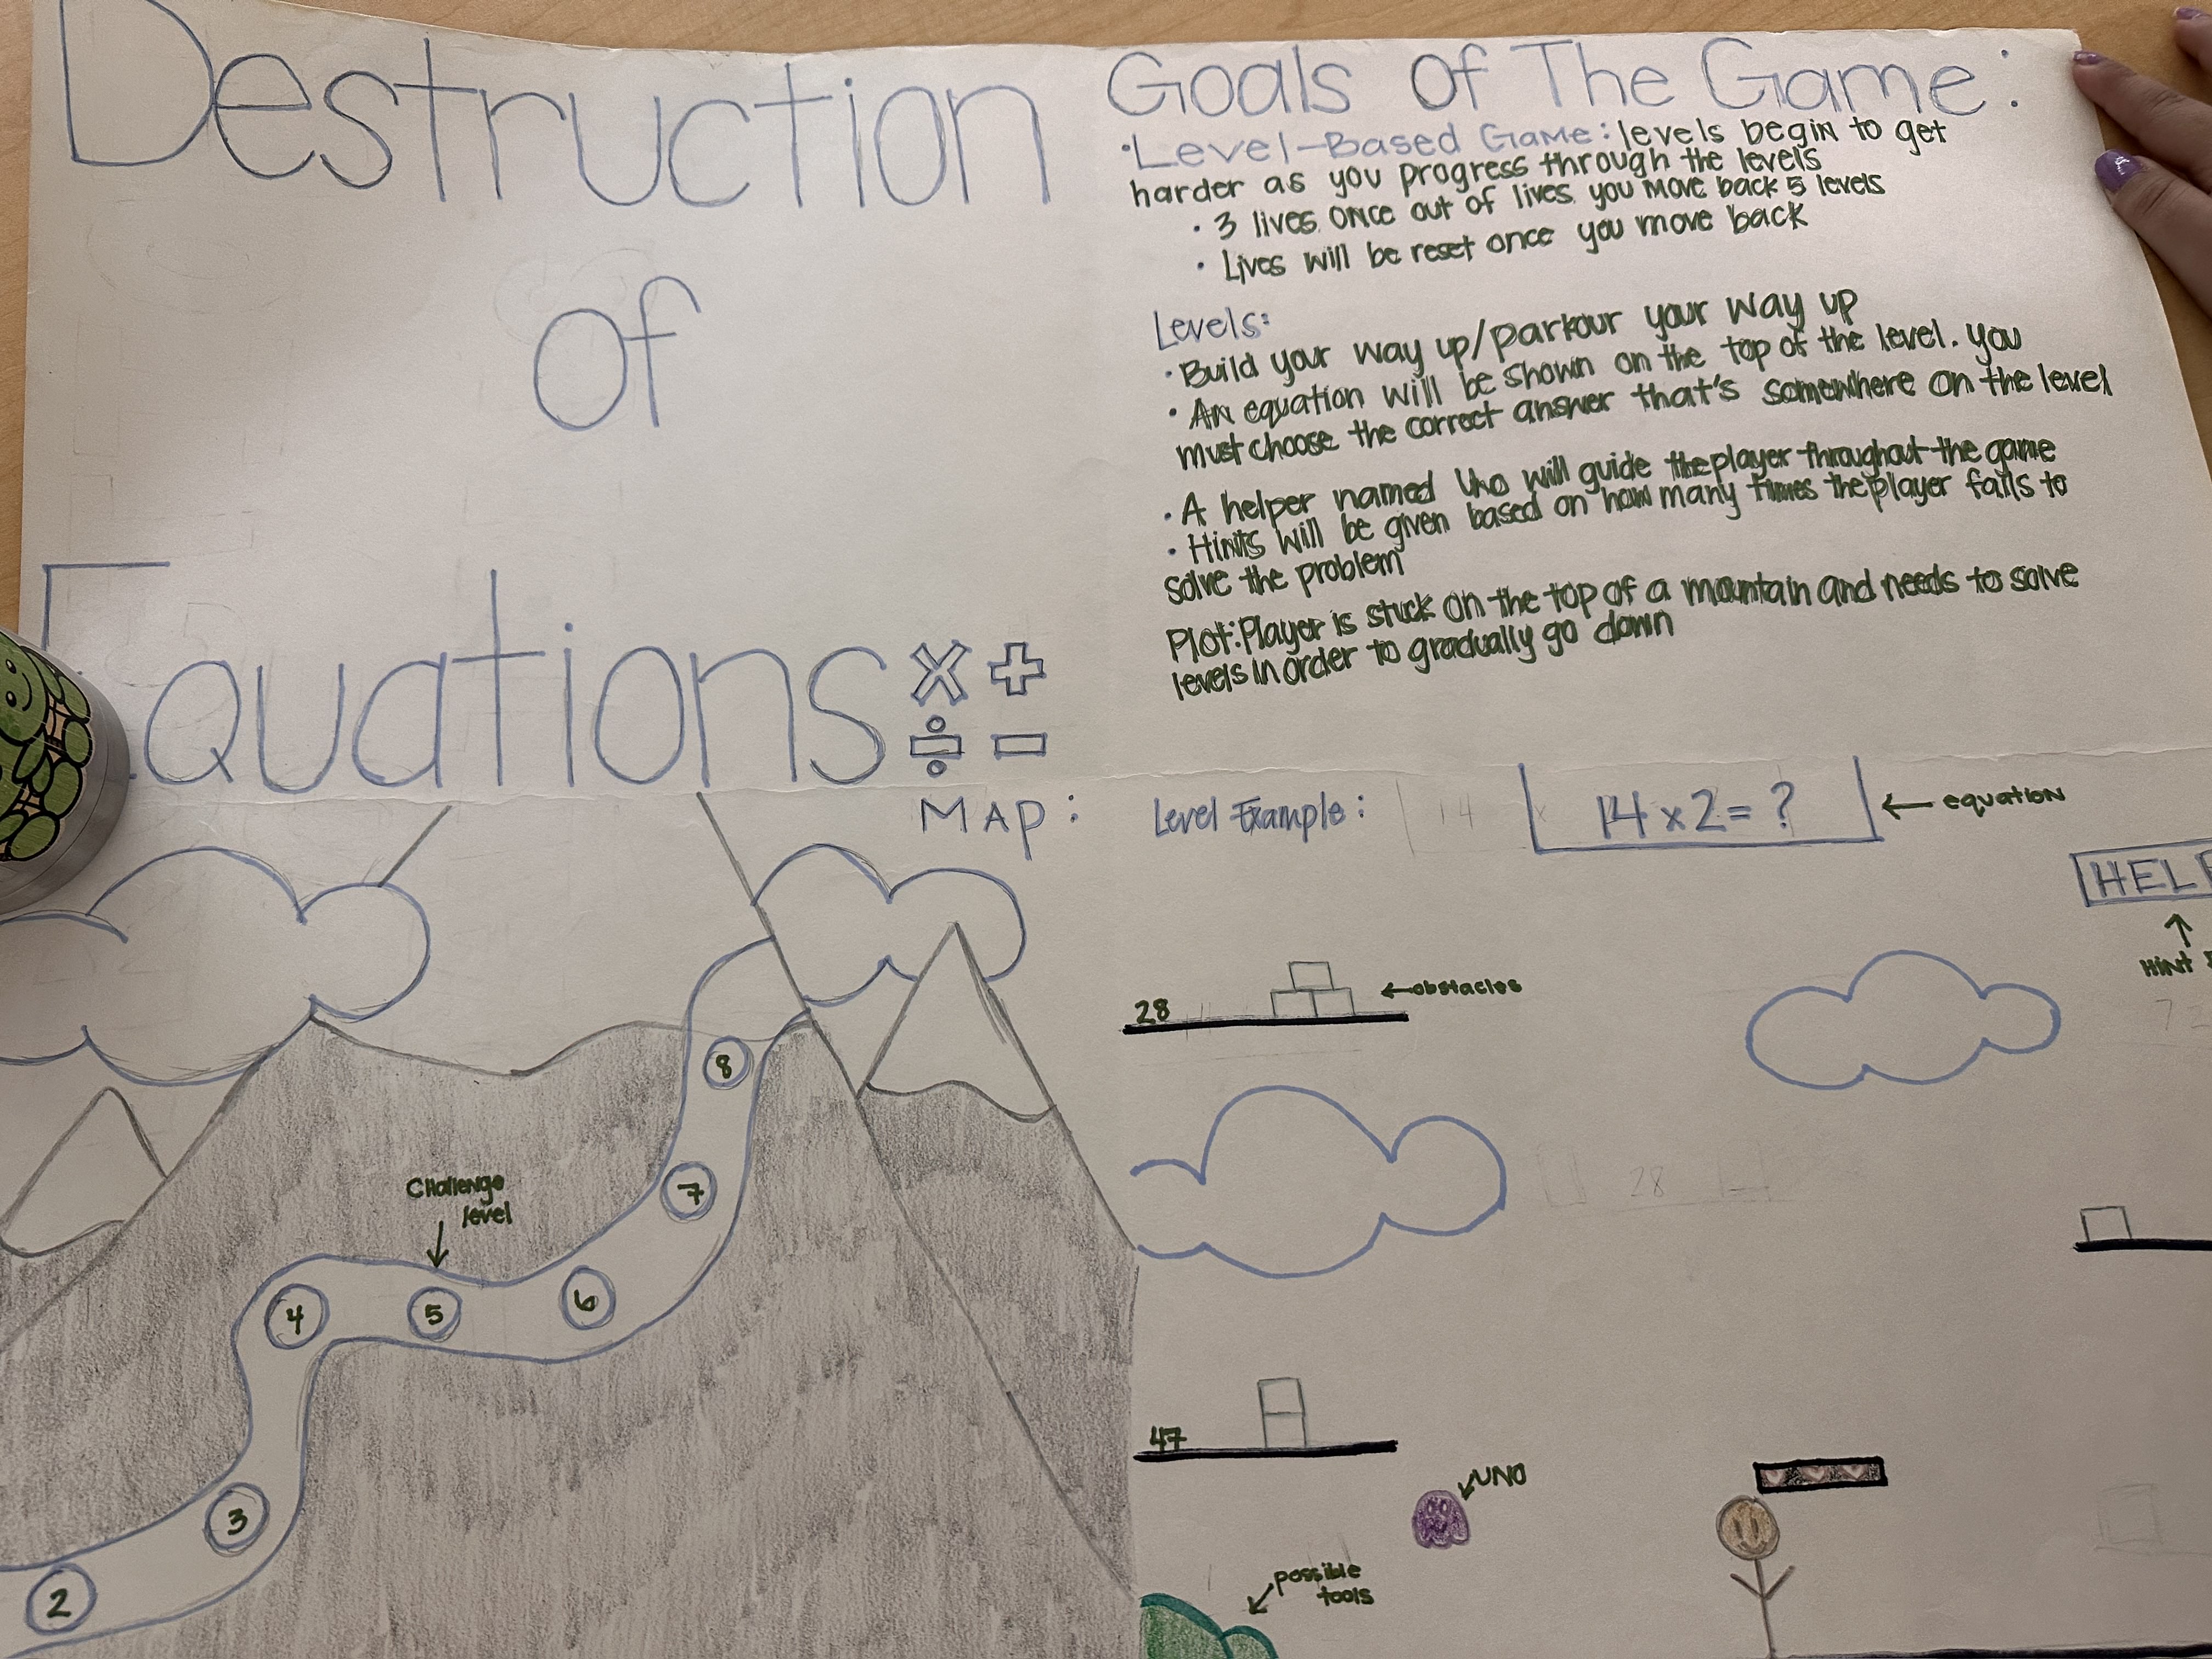 Destruction
of
Equations × +
÷ −
Goals Of The Game:
• Level-Based Game: levels begin to get
harder as you progress through the levels
• 3 lives once out of lives you move back 5 levels
• Lives will be reset once you move back
Levels:
• Build your way up/parkour your way up
• An equation will be shown on the top of the level. you
must choose the correct answer that's somewhere on the level
• A helper named Uno will guide the player throughout the game
• Hints will be given based on how many times the player fails to
solve the problem
Plot: Player is stuck on the top of a mountain and needs to solve
levels in order to gradually go down
MAP:
8
7
Challenge
level
4
5
6
3
2
Level Example:
14
14 x 2 = ?
← equation
HELP
hint
28
← obstacles
28
47
UNO
possible
tools